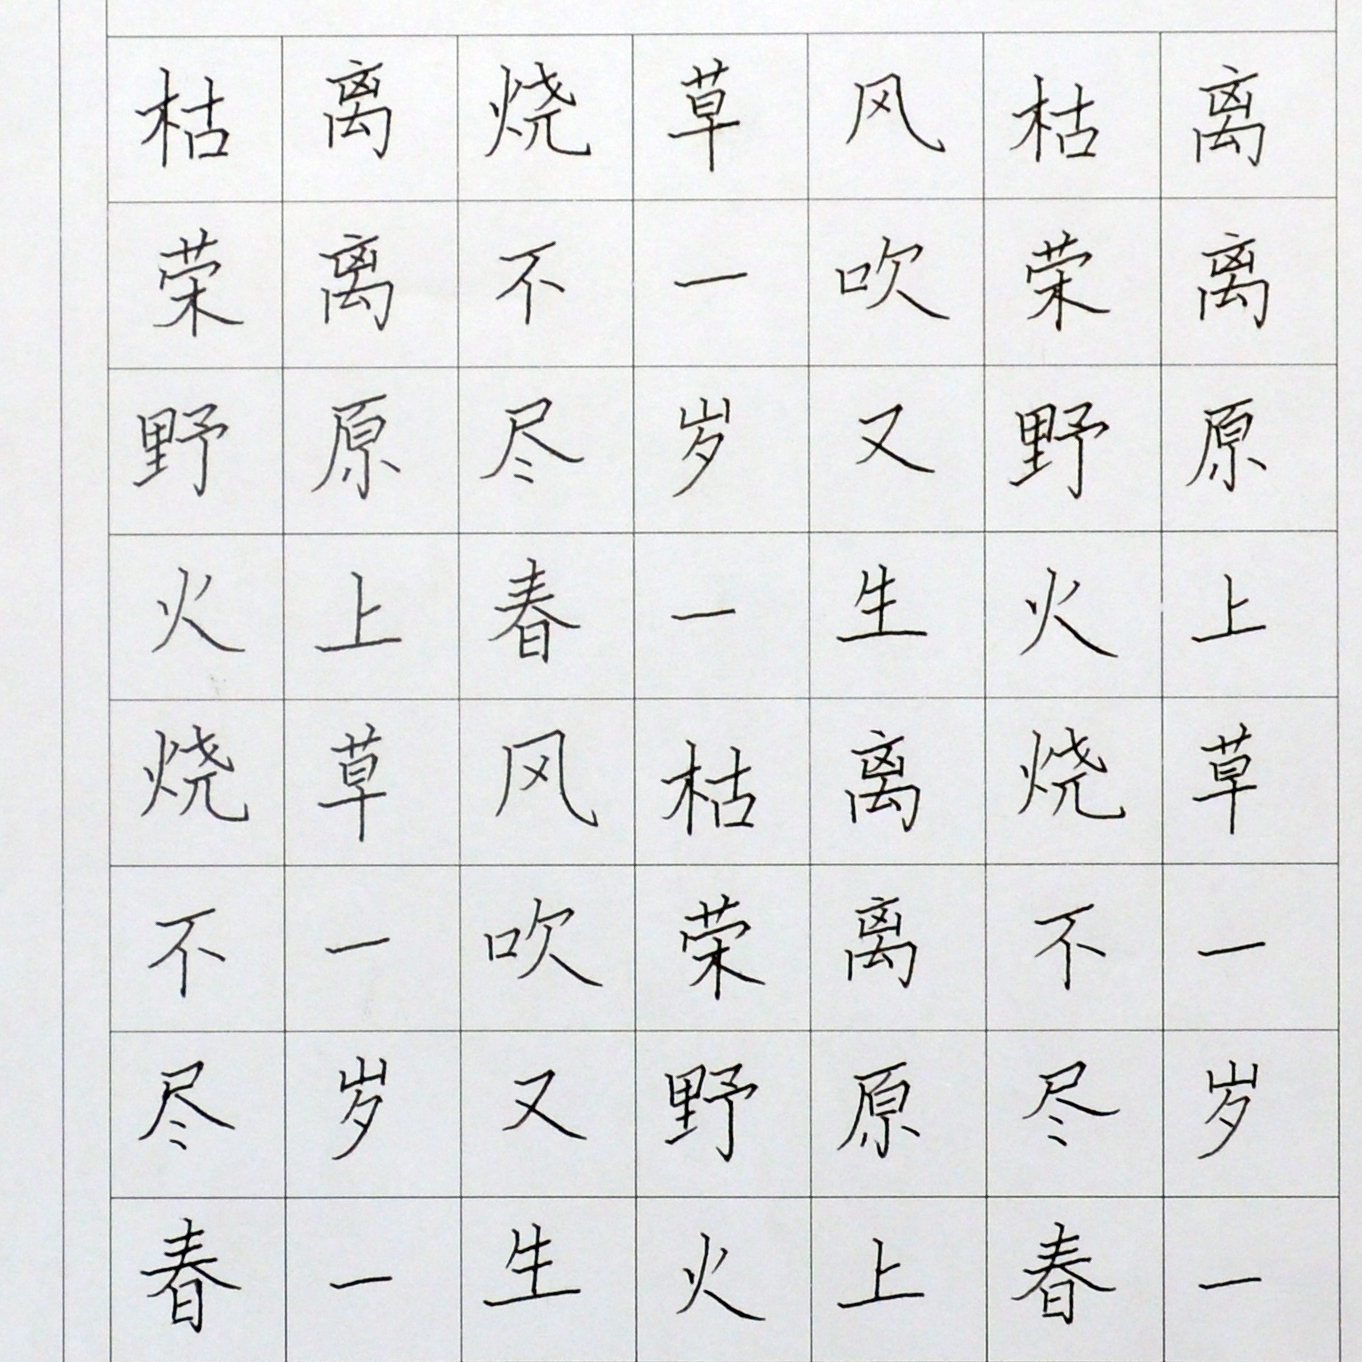 离离原上草一岁一
枯荣野火烧不尽春
风吹又生离离原上
草一岁一枯荣野火
烧不尽春风吹又生
离离原上草一岁一
枯荣野火烧不尽春